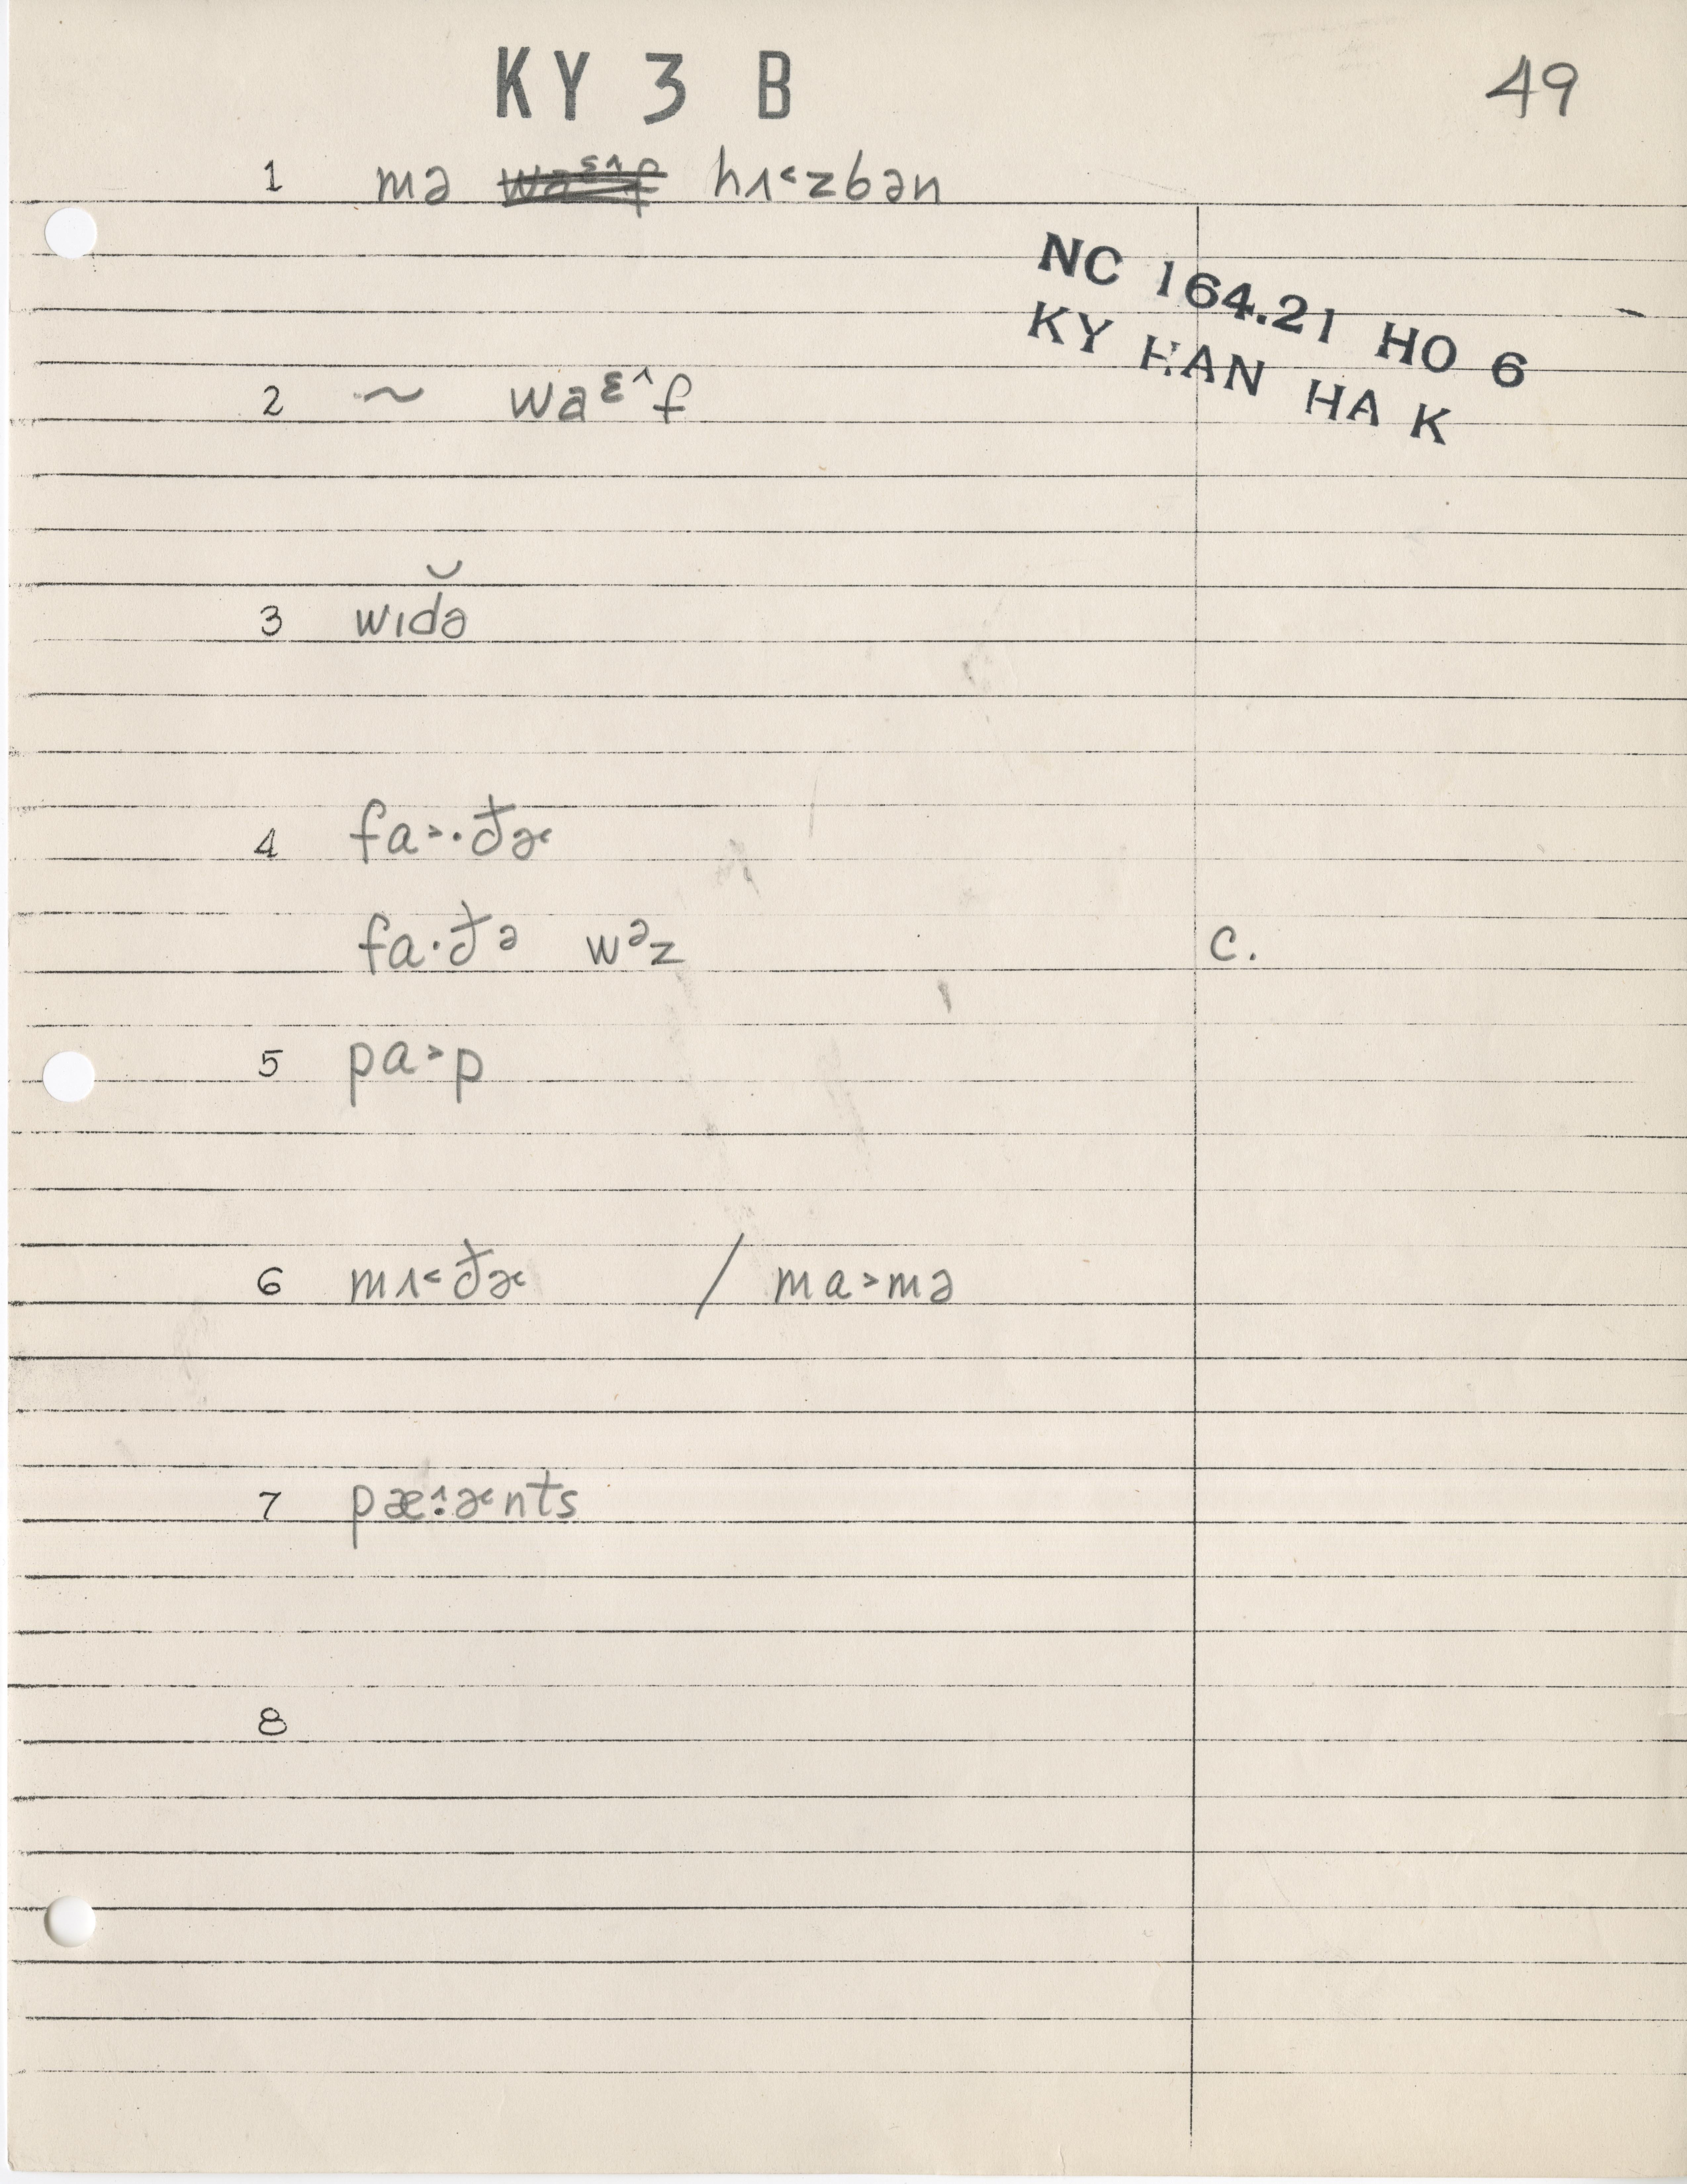 KY 3 B
49
1 mə wa^ɛ˄f hʌ˂zbən
NC 164.21 HO 6
KY HAN HA K
2 ~ wa^ɛ˄f
3 wɪd̮ə
4 fa˃·ðə˞
fa·ðə wəz C.
5 pa˃p
6 mʌ˂ðə˞ / ma˃mə
7 pæ˄:ə˞nts
8